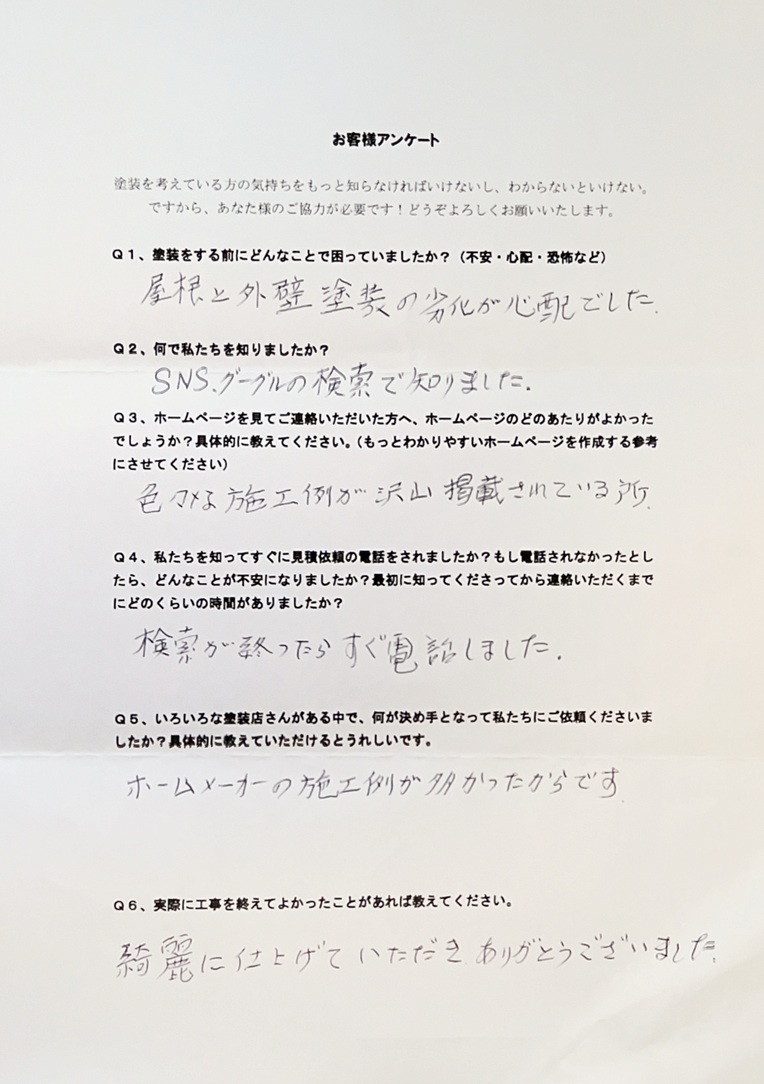 お客様アンケート
塗装を考えている方の気持ちをもっと知らなければいけないし、わからないといけない。
ですから、あなた様のご協力が必要です！どうぞよろしくお願いいたします。
Ｑ１、塗装をする前にどんなことで困っていましたか？（不安・心配・恐怖など）
屋根と外壁塗装の劣化が心配でした.
Ｑ２、何で私たちを知りましたか？
SNS、グーグルの検索で知りました.
Ｑ３、ホームページを見てご連絡いただいた方へ、ホームページのどのあたりがよかった
でしょうか？具体的に教えてください。（もっとわかりやすいホームページを作成する参考
にさせてください）
色々な施工例が沢山掲載されている所.
Ｑ４、私たちを知ってすぐに見積依頼の電話をされましたか？もし電話されなかったとし
たら、どんなことが不安になりましたか？最初に知ってくださってから連絡いただくまで
にどのくらいの時間がありましたか？
検索が終ったらすぐ電話しました.
Ｑ５、いろいろな塗装店さんがある中で、何が決め手となって私たちにご依頼くださいま
したか？具体的に教えていただけるとうれしいです。
ホームメーオーの施工例が多かったからです.
Ｑ６、実際に工事を終えてよかったことがあれば教えてください。
綺麗に仕上げていただき、ありがとうございました.